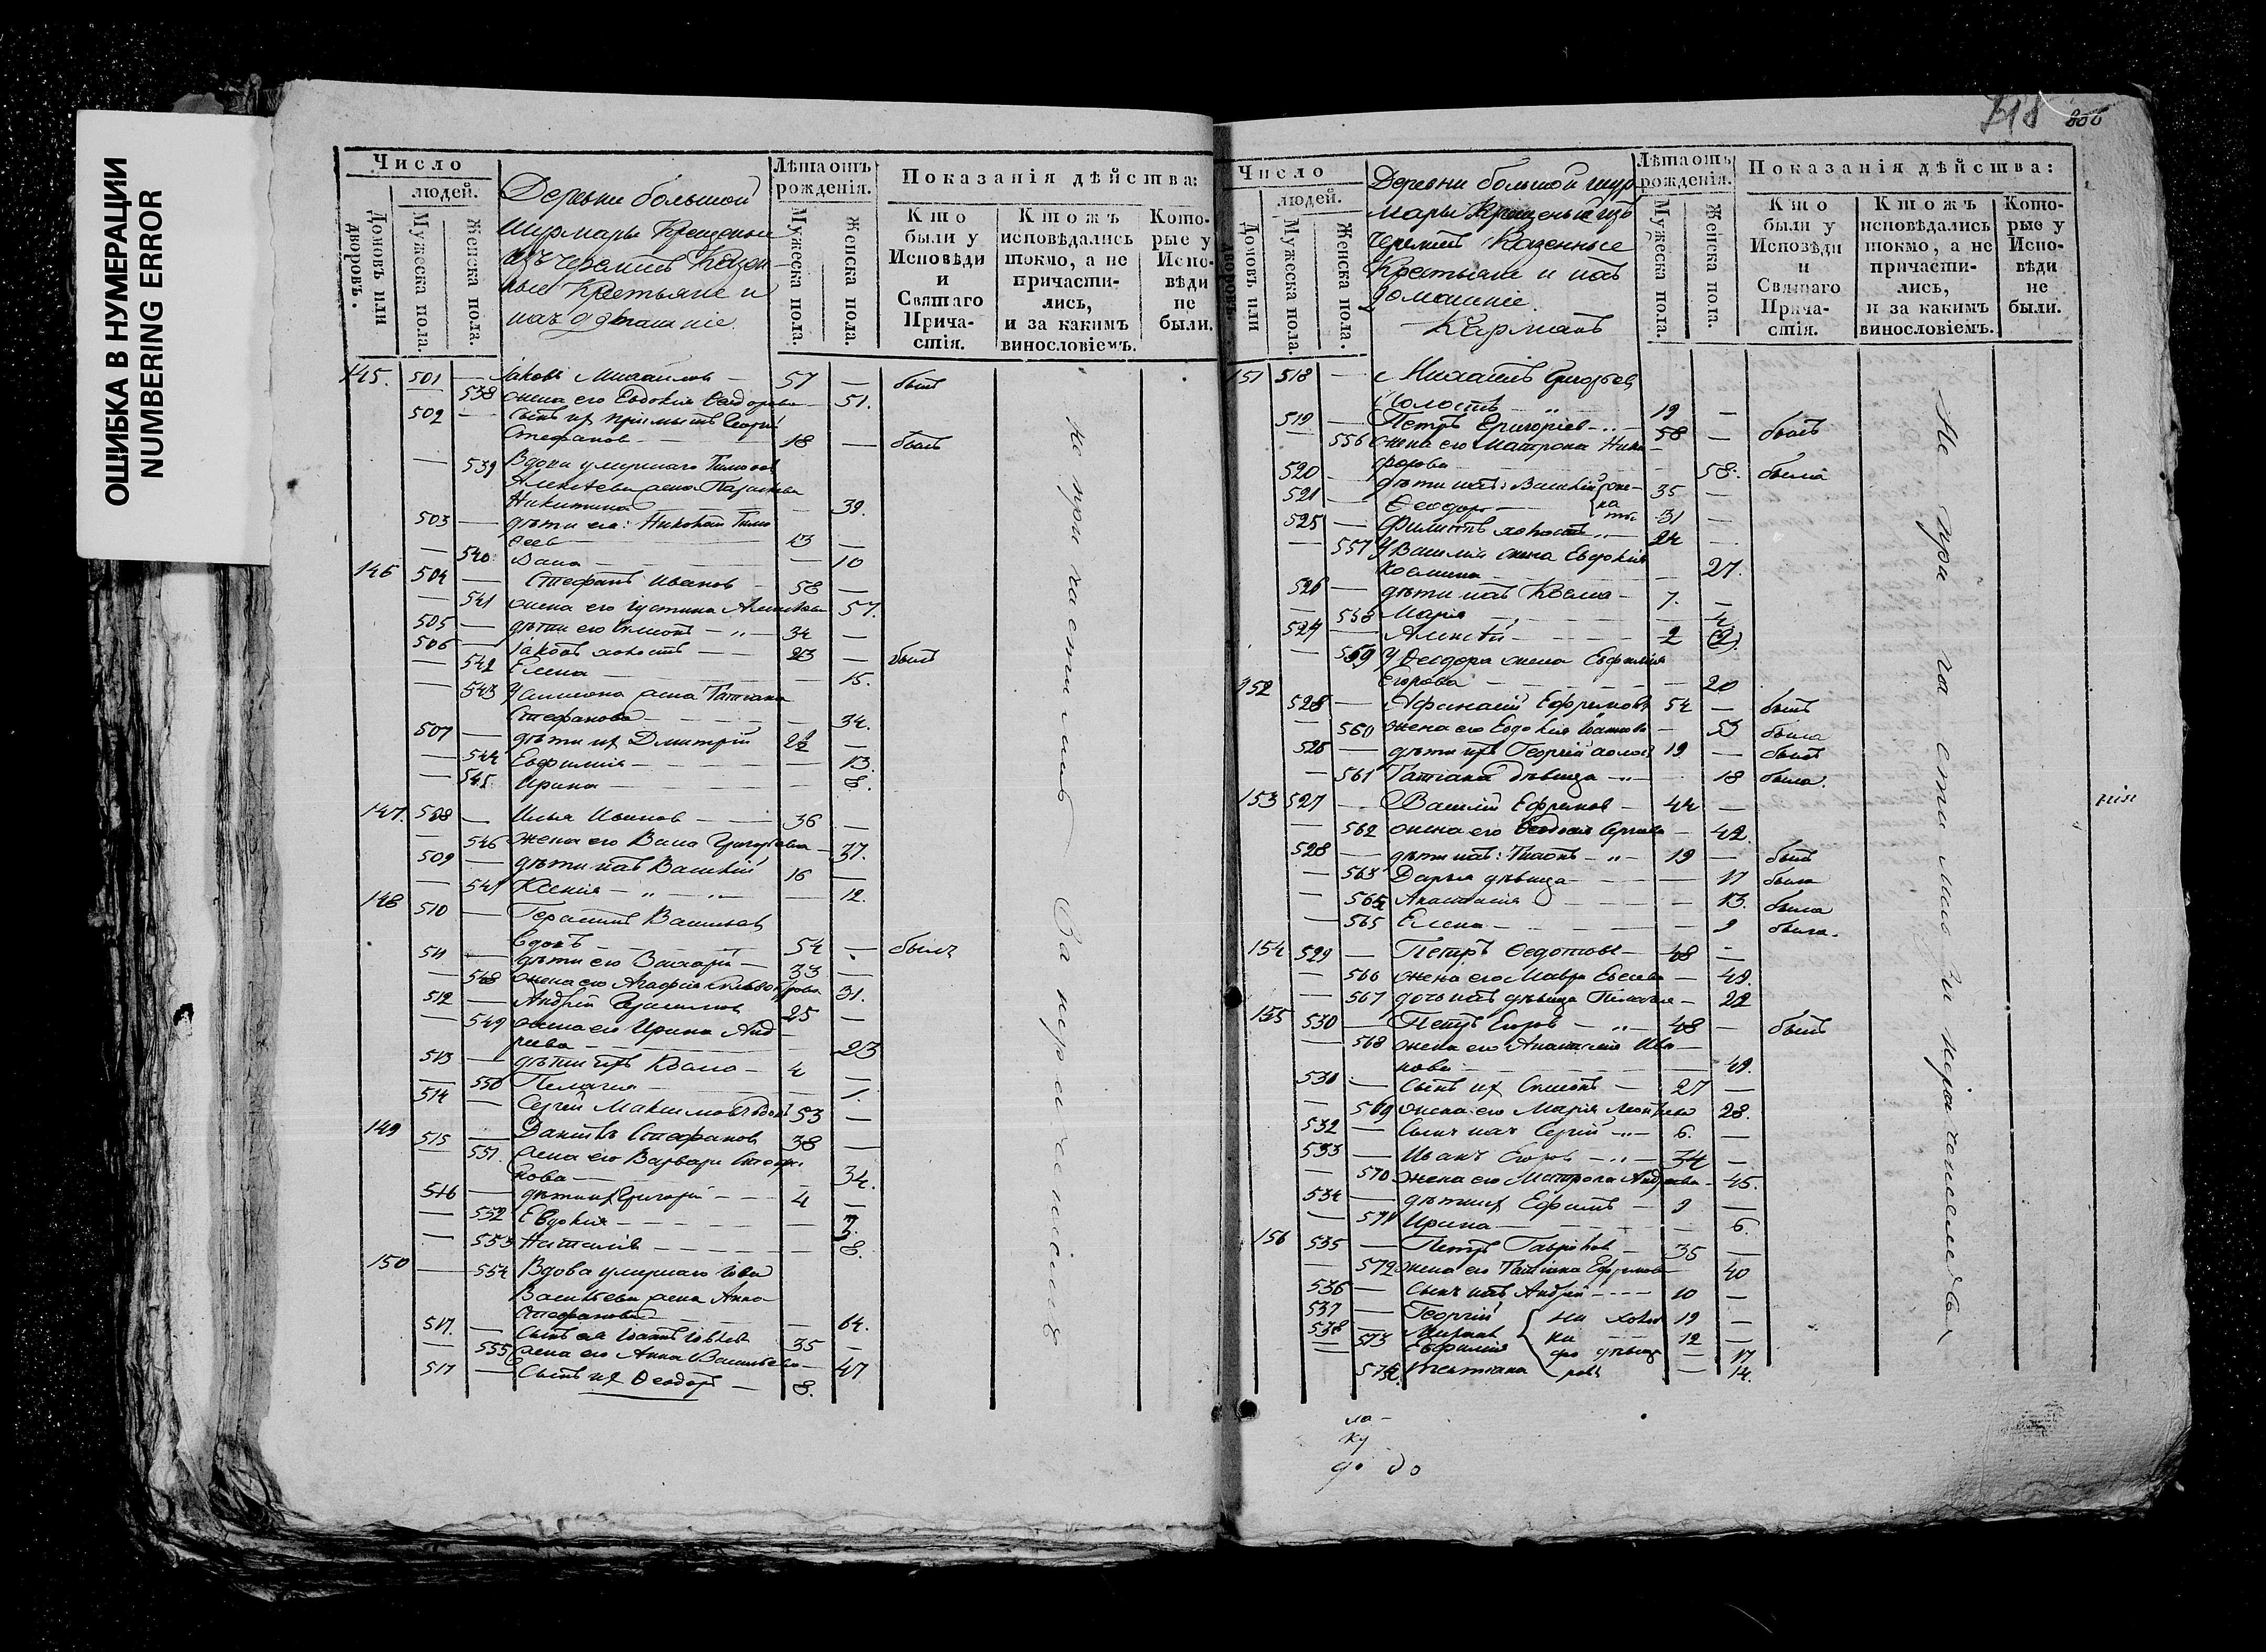 ОШИБКА В НУМЕРАЦИИ
NUMBERING ERROR
Число
людей.
Домовъ или дворовъ.
Мужеска пола.
Женска пола.
Деревни большой
Шурмары Крещеные
изъ Черемисъ Казен-
ные Крестьяне и
ихъ домашніе.
Лѣта отъ рожденія.
Мужеска пола.
Женска пола.
Показанія дѣйства:
Кто были у Исповѣди и Святаго Причастія.
Ктожъ исповѣдались токмо, а не причастились, и за какимъ винословіемъ.
Которые у Исповѣди не были.
145. 501 — Іаковъ Михаиловъ — 57 — былъ
538 жена его Евдокія Ѳеодорова — 51.
502 — сынъ их пріемышъ Георгій
Стефановъ — 18 — былъ
— 539 Вдова умершаго Тимоѳея
Алексѣева жена Параскева
Никитина — 39.
503 — дѣти ея: Николай Тимо
ѳеев — 13 —
— 540 Васса — 10
146 504 — Стефанъ Ивановъ — 58 —
— 541 жена его Іустина Алексѣева 57.
505 — дѣти его Симеонъ — 34 —
506 — Іаковъ холостъ — 23 — былъ
— 542 Елена — 15.
— 543 У Симеона жена Татіана
Стефанова — 34.
507 — дѣти их Димитрій —
— 544 Евфимія — 13.
— 545 Ирина — 8.
147. 508 — Илья Ивановъ — 36 —
— 546 жена его Васса Григорьева — 37.
509 — дѣти ихъ Василій 16 —
— 547 Ксенія — 12.
148 510 — Герасимъ Васильевъ
вдовъ — 54 — былъ
511 — дѣти его Захарій — 33 —
— 548 жена его Агафія 31.
512 — Андрей Герасимовъ 25 —
— 549 жена его Ирина Анд
реева — 23
513 — дѣти ихъ Косма — 4 —
— 550 Пелагея — 1.
514 — Сергей Максимовъ вдовъ 53 —
149 515 — Даніилъ Стефановъ 38 —
— 551. жена его Варвара Стефа
нова — 34.
516 — дѣти их Григорій — 4 —
— 552 Евдокія —
— 553 Наталія — 8.
150 — 554 Вдова умершаго Іова
Васильева жена Анна
Стефанова — 64.
517. — сынъ ея Іоаннъ Іовлевъ 35 —
555 жена его Анна Васильева — 47
517 — сынъ их Ѳеодоръ — 8.
не причастились За нераченіемъ
718
806
Число
людей.
Домовъ или дворовъ.
Мужеска пола.
Женска пола.
Деревни большой шур
мары Крещеные изъ
Черемисъ Казенные
Крестьяне и ихъ
домашніе.
Лѣта отъ рожденія.
Мужеска пола.
Женска пола.
Показанія дѣйства:
Кто были у Исповѣди и Святаго Причастія.
Ктожъ исповѣдались токмо, а не причастились, и за какимъ винословіемъ.
Которые у Исповѣди не были.
151 518 — Михаилъ Григорьевъ
холостъ — 19 —
519 — Петръ Григоріев — 58 — былъ
— 556 жена его Матрона Ники-
форова — 58. была
520 — дѣти ихъ: Василій 35 —
521 — Ѳеодоръ — 31 —
525 — Филиппъ холостъ 24 —
— 557 У Василія жена Евдокія
Космина — 27.
526 — дѣти ихъ Косма — 7. —
— 558 Марія — 4.
524 — Алексѣй — 2 (2)
— 559 У Ѳеодора жена Евфимія
Егорова — 20
152 528 — Афанасій Ефремовъ 54 — былъ
— 560 жена его Евдокія Іоаннова — 53 была
526 — дѣти ихъ Георгій холос 19 — былъ
— 561 Татіана дѣвица — 18 была.
153 527 — Василій Ефремов — 44 —
— 562 жена его Ѳеодосія Сергиева — 42.
528 — дѣти ихъ: — 19 — былъ
— 563 Дарья дѣвица — 17 была
— 564 Анастасія — 13. была
— 565 Елена — 9 была.
154 529 — Петръ Ѳедотовъ — 48 —
— 566 жена его Мавра Евсеева — 49.
— 567 дочь ихъ дѣвица Пелагея — 22
155 530 — Петръ Егоров — 48 — былъ
— 568 жена его Анастасія Ива-
нова — 49.
531 — сынъ их Симеонъ — 27 —
— 569 жена его Марія 28.
532 — сынъ ихъ Сергій — 6. —
533 — Иванъ Егоров — 34 —
— 570 жена его Матрона Андреева — 45.
534 — дѣти их Ефимъ — 9 —
— 571 Ирина — 6.
156 535 — Петръ Гавриловъ — 35 —
— 572 жена его Татіана Ефремова 40
536 — сынъ ихъ Андрей — 10 —
537 — Георгій ни холос 19 —
538 — ки 12 —
573 Евфимія фо дѣвица — 17
574. Татіана ровы — 14.
Не причастились За нераченіемъ
нія
ла-
ку
до